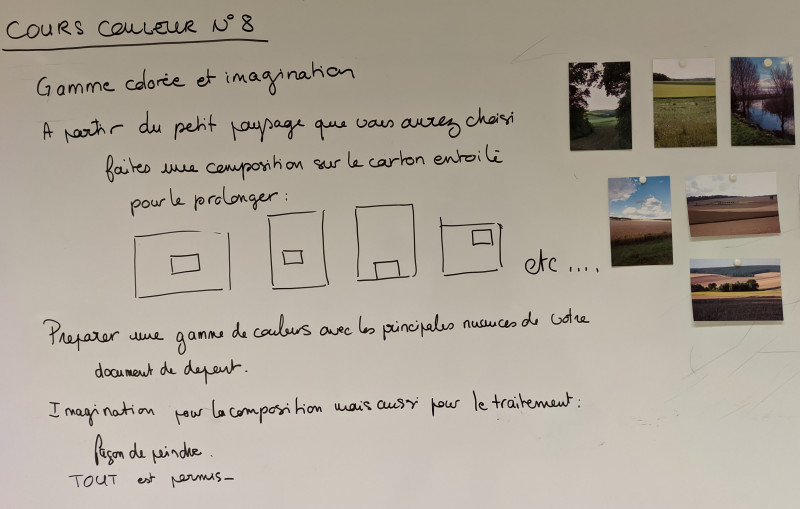 COURS COULEUR N°8
Gamme colorée et imagination
A partir du petit paysage que vous aurez choisi
faites une composition sur le carton entoilé
pour le prolonger :
etc ....
Preparer une gamme de couleurs avec les principales nuances de votre
document de depart.
Imagination pour la composition mais aussi pour le traitement :
façon de peindre.
TOUT est permis_